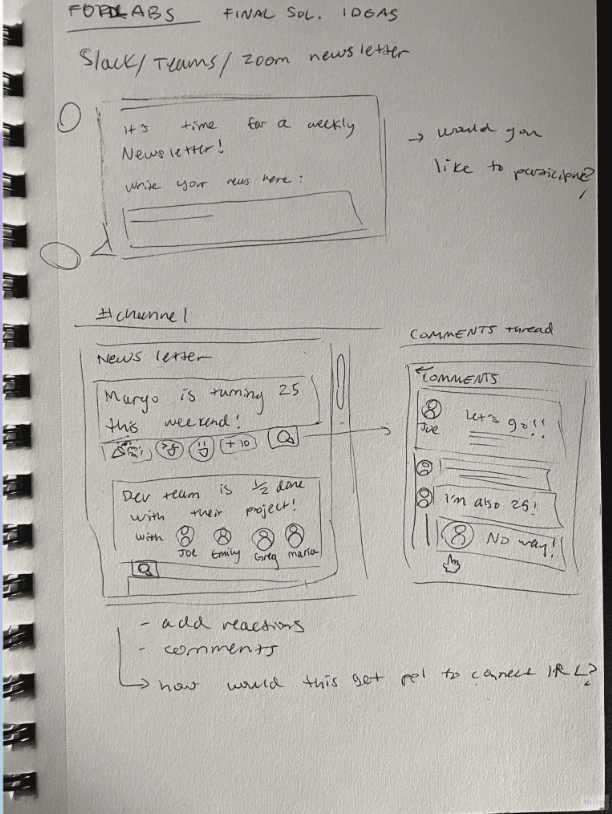 FORDLABS FINAL SOL. IDEAS
Slack/Teams/Zoom newsletter
It's time for a weekly
Newsletter!
Write your news here:
→ would you
like to participate?
#channel
News letter
Margo is turning 25
this weekend!
+10
Dev team is 1/2 done
with their project!
with
Joe Emily Greg Maria
COMMENTS thread
←COMMENTS
Joe
Let's go!!
I'm also 25!
No way!!
- add reactions
- comments
→ how would this get ppl to connect IRL?
miro